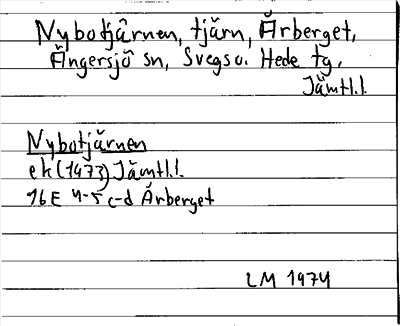 Nybotjärnen, tjärn, Ärberget,
Ängersjö sn, Svegs o. Hede tg,
Jämtl.l.
Nybotjärnen
ek (1973) Jämtl.l.
16E 4-5 c-d Ärberget
LM 1974